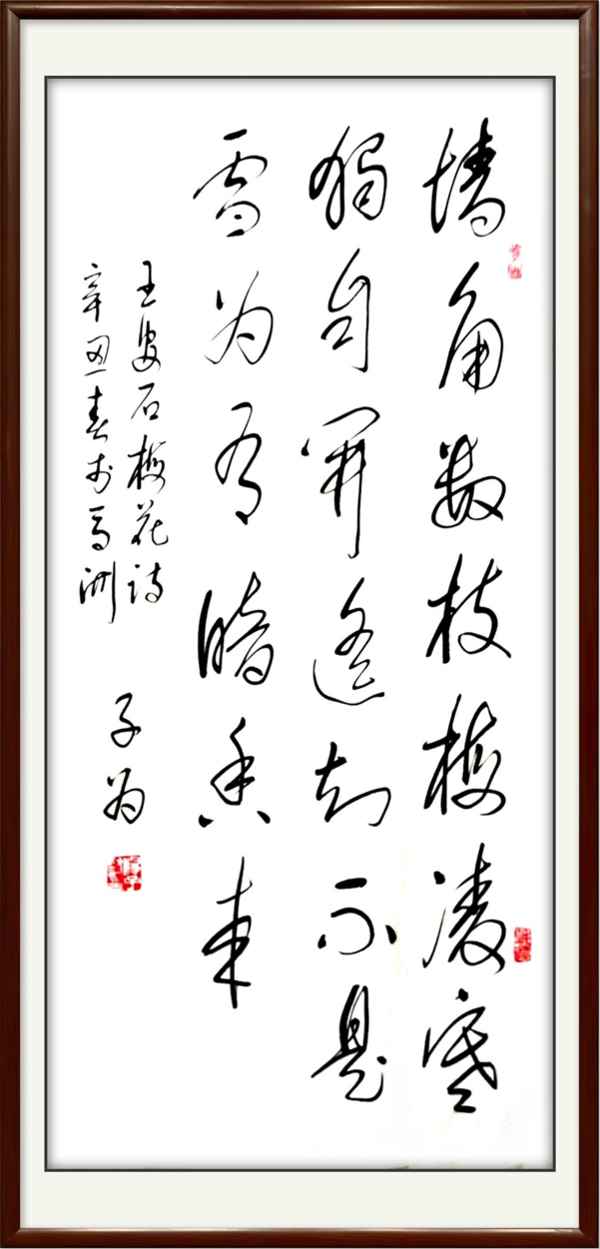 墙角数枝梅凌寒
獨自開遥知不是
雪为有暗香来
王安石梅花诗
辛丑春於马洲
子为